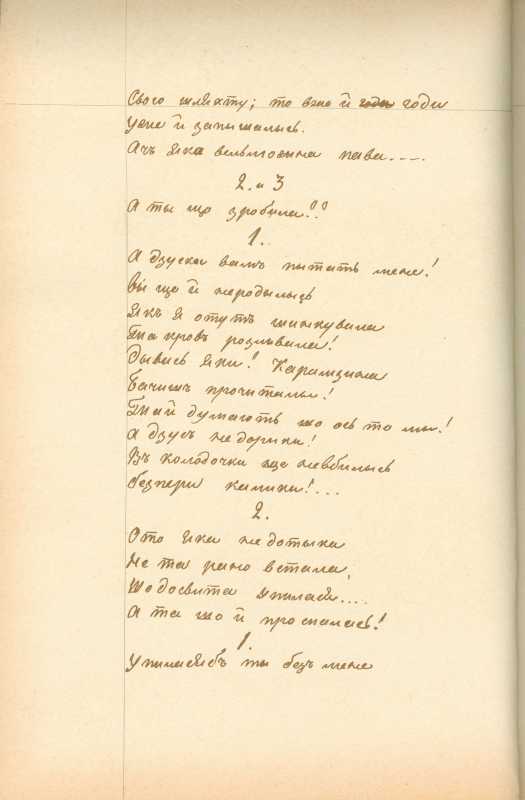 Свого шляхту; то вже й годи годи
Уже й запишались.
Ачъ яка вельможна пава....
2. и 3
А ты що зробила!!
1.
А дзуски вамъ пытать мене!
Вы ще й неродылысь
Якъ я отутъ шинкувала
Та кровъ розлывала!
Дывись яки! Карамзина
Бачишъ прочитали!
Та й думають що ось то мы!
А дзусь недорики!
Въ колодочки ще невбылысь
Безпери калики!...
2.
Ото яка недотыка
Не та рано встала,
Що досвита упылася....
А та що й проспалась!
1.
Упиласябъ ты безъ мене